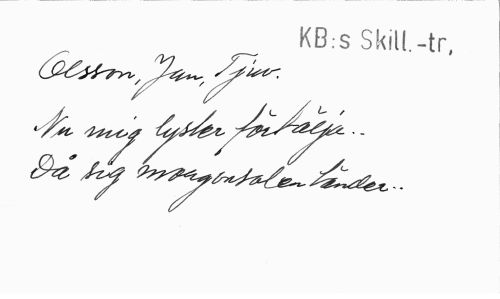 KB:s Skill.-tr,
Olsson, Jan, Tjuv.
Nu mig lyster förtälja..
Då sig morgonsolen tänder..